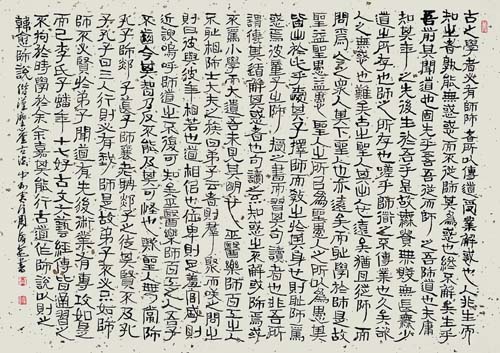 古之學者必有師師者所以傳道受業解惑也人非生而
知之者孰能無惑惑而不從師其為惑也終不解矣生乎
吾前其聞道也固先乎吾吾從而師之吾師道也夫庸
知其年之先後生於吾乎是故無貴無賤無長無少
道之所存也師之所存也嗟乎師道之不傳業久矣欲
人之無惑也難矣古之聖人其出人也遠矣猶且從師而
問焉今之眾人其下聖人也亦遠矣而恥學於師是故
聖益聖愚益愚聖人之所以為聖愚人之所以為愚其
皆出於此乎愛其子擇師而教之於其身也則恥師焉
惑矣彼童子之師授之書而習其句讀者也非吾所
謂傳其道解其惑者也句讀之不知惑之不解或師焉
或不焉小學而大遺吾未見其明也巫醫樂師百工之人
不恥相師士大夫之族曰師曰弟子云者則群聚而笑之問之
則曰彼與彼年相若也道相似也位卑則足羞官盛則
近諛嗚呼師道之不復可知矣巫醫樂師百工之人君子
不齒今其智乃反不能及其可怪也歟聖人無常師
孔子師郯子萇弘師襄老聃郯子之徒其賢不及孔
子孔子曰三人行則必有我師是故弟子不必不如
師師不必賢於弟子聞道有先後術業有專攻如是
而已李氏子蟠年十七好古文六藝經傳皆通習之
不拘於時學於余余嘉其能行古道作師說以貽之
韓愈師說